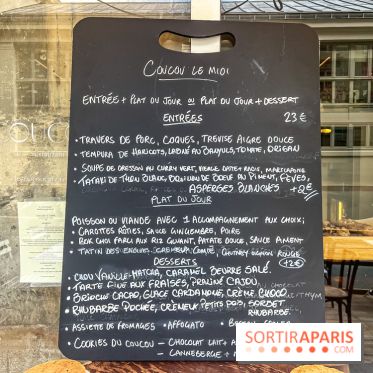 COUCOU LE MIDI
ENTRÉE + PLAT DU JOUR OU PLAT DU JOUR + DESSERT
23 €
ENTRÉES
• TRAVERS DE PORC, COQUES, TREVISE AIGRE DOUCE
• TEMPURA DE HARICOTS, LABNÉ AU BANYULS, TOMATE, ORIGAN
• SOUPE DE CRESSON AU CURRY VERT, RADIS, MASCARPONE
• TATAKI DE THON BLANC, BOUILLON DE BOEUF AU PIMENT, FÈVES,
ASPERGES BLANCHES +2€
PLAT DU JOUR
POISSON OU VIANDE AVEC 1 ACCOMPAGNEMENT AUX CHOIX;
• CAROTTES RÔTIES, SAUCE GINGEMBRE, POIRE
• BOK CHOI FARCI AUX RIZ GLUANT, PATATE DOUCE, SAUCE PIMENT
• TATIN DES COMTÉ, CHUTNEY OIGNON ROUGE
+2€
DESSERTS
• CHOU VANILLE-MATCHA, CARAMEL BEURRE SALÉ.
• TARTE FINE AUX FRAISES, PRALINÉ CAJOU.
• BRIOCHE CACAO, GLACE CARDAMOME, CRÈME CHOCO
• RHUBARBE POCHÉE, CRÉMEUX PETITS POIS, SORBET
RHUBARBE.
• ASSIETTE DE FROMAGES • AFFOGATO
• COOKIES DU COUCOU – CHOCOLAT LAIT
– CANNEBERGE +
SORTIRAPARIS
.COM